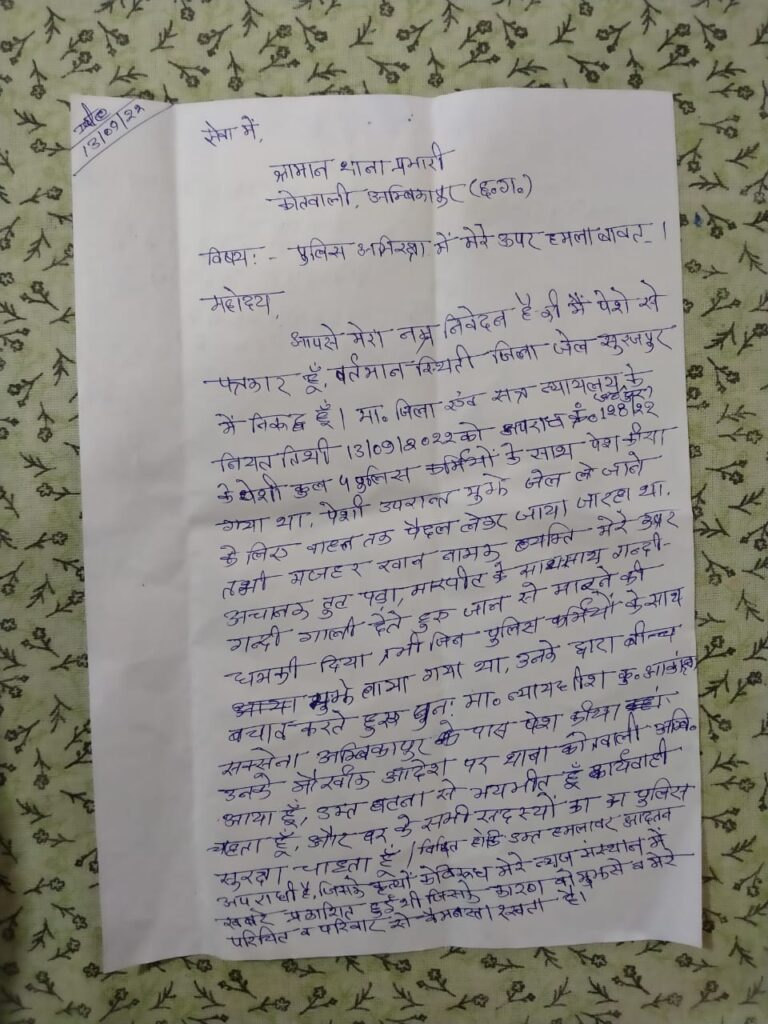 13/09/22
सेवा में,
श्रीमान थाना प्रभारी
कोतवाली, अम्बिकापुर (छ०ग०)
विषय:- पुलिस अभिरक्षा में मेरे ऊपर हमला बावत्- ।
महोदय,
आपसे मेरा नम्र निवेदन है की मैं पेशे से
पत्रकार हूँ, वर्तमान स्थिती जिला जेल सूरजपुर
में निरूद्ध हूँ। मा. जिला एवं सत्र न्यायलय के
नियत तिथी 13/09/2022 को अपराध क्रं० 128/22
के पेशी कुल 5 पुलिस कर्मियों के साथ पेश कीया
गया था, पेशी उपरान्त मुझे जेल ले जाने
के लिए वाहन तक पैदल लेकर जाया जा रहा था.
तभी मजहर खान नामक व्यक्ति मेरे ऊपर
अचानक टुट पड़ा, मारपीट के साथ साथ गन्दी-
गन्दी गाली देते हुए जान से मारने की
धमकी दिया तभी जिन पुलिस कर्मियों के साथ
मुझे लाया गया था, उनके द्वारा बीच्च
बचाव करते हुए पुनः मा. न्यायधीश कु. आकांक्षा
सक्सेना अम्बिकापुर के पास पेश कीया
उनके मौखीक आदेश पर थाना कोतवाली अम्बि.
आया हूँ, उक्त घटना से भयभीत हूँ कार्यवाही
चहता हूँ, और घर के सभी सदस्यों का पुलिस
सुरक्षा चाहता हूँ / विदित हो कि उक्त हमलावर आदतन
अपराधी है, जिसके कृत्यों के विरूध मेरे न्यूज संस्थान में
खबर प्रकाशित हुई थी, जिसके कारण वो मुझसे व मेरे
परिचित व परिवार से वैमनस्ता रखता है।